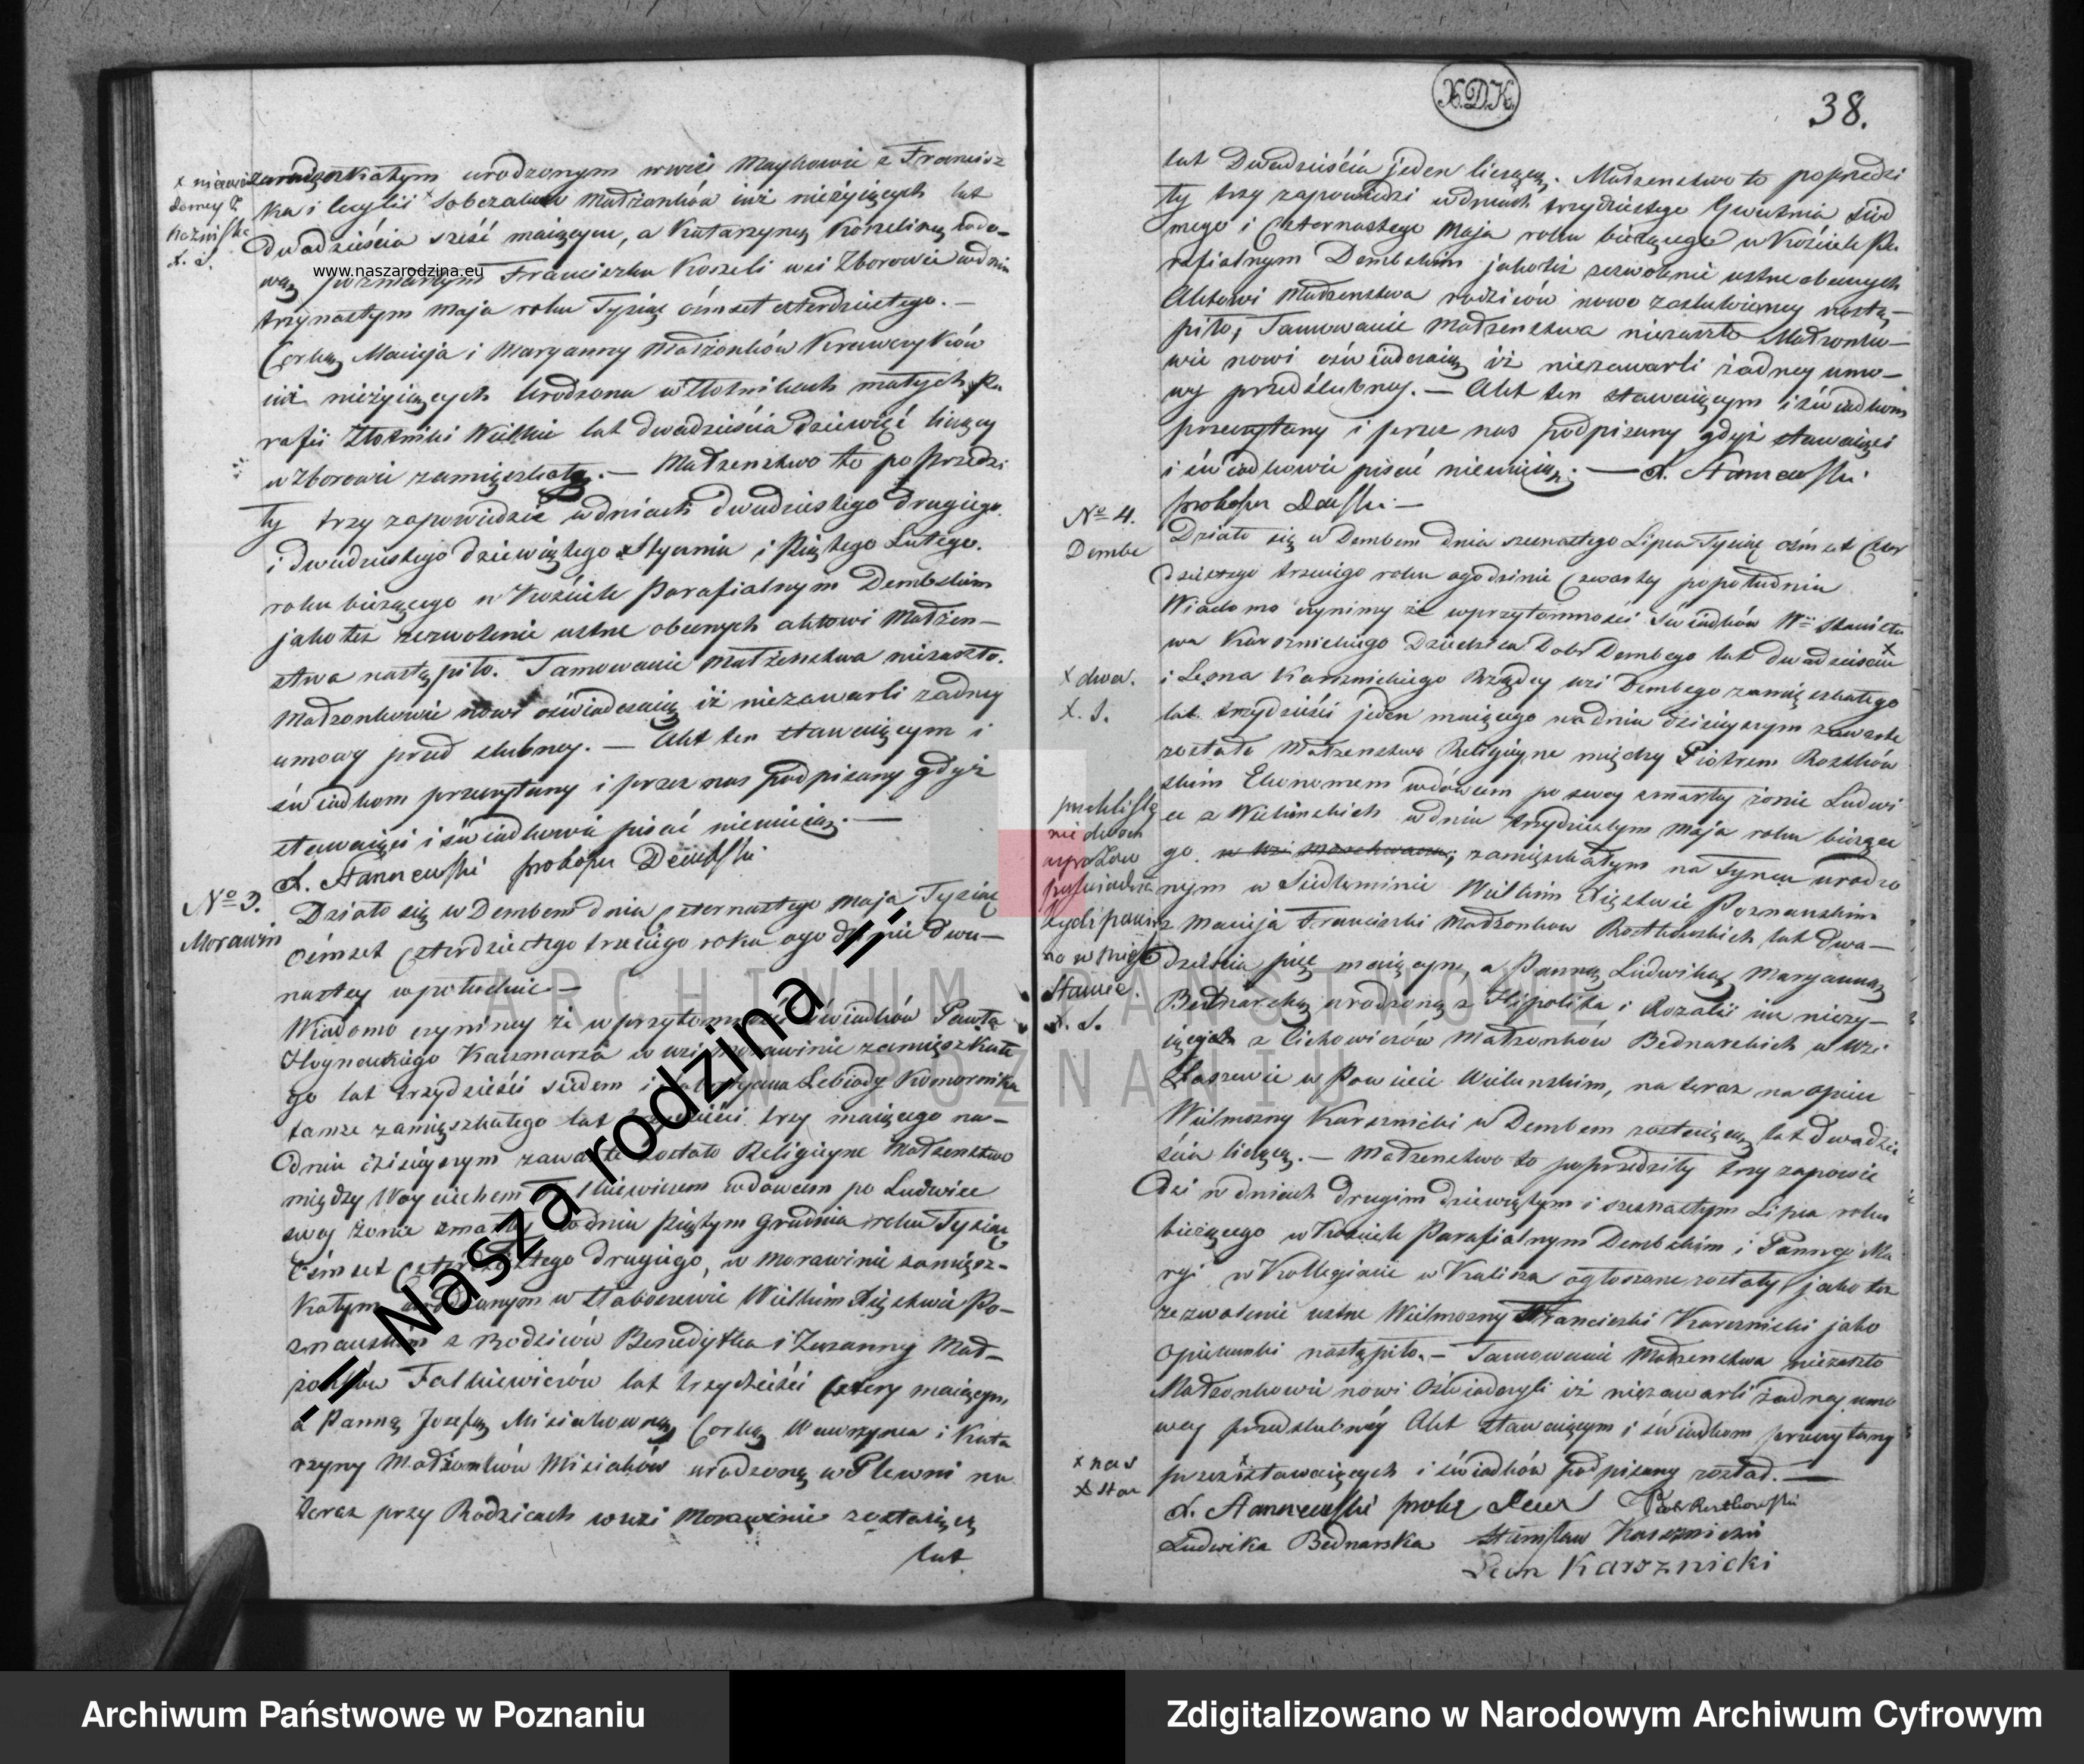 X.D.K.
38.
x niewia
domey
x. S.
zamieszkałym urodzonym wwsi Maykowie z Francisz
ka i Cecylii x Sobczaków Małżonków iuż nieżyiących lat
dwadzieścia sześć maiącym, a Katarzyną Koszeliną wdo-
wą po zmarłym Franciszku Koszeli wsi Zborowie wdniu
trzynastym Maja roku Tysiąc ośmset czterdziestego. —
Córką Macieja i Maryanny Małżonków Krawczyków
iuż nieżyiących Urodzona w Złotnikach małych Pa
rafii Złotniki Wielkie lat dwadzieścia dziewięć liczący
w Zborowie zamięszkałą. — Małżenstwo to poprzedzi
ły trzy zapowiedzie wdniach dwudziestego drugiego
i dwudziestego dziewiątego Stycznia i Piątego Lutego.
roku bieżącego w Kościele Parafialnym Dembskim
jako też zezwolenie ustne obecnych aktowi Małżen-
stwa nastąpiło. Tamowanie Małżeństwa niezaszło.
Małżonkowie nowi oświadczaią iż niezawarli żadney
umowy przed slubney. — Akt ten stawaiącym i
świadkom przeczytany i przez nas podpisany gdyż
stawaiący i świadkowie pisać nieumieią. —
X. Stanczewski proboszcz Dembski
No 3.
Morawin
Działo się w Dembem dnia czternastego Maja Tysiąc
ośmset czterdziestego trzeciego roku ogodzinie dwu-
nastey wpołudnie. —
Wiadomo czyniemy że wprzytomności świadków Pawła
Kaczmarza wwsi Morawinie zamięszkałe
go lat trzydzieści siedem i Lebiody Komornika
tamże zamięszkałego lat trzydzieści trzy maiącego na-
dniu dzisieyszym zawarte zostało Religiyne Małżenstwo
między Woyciechem Falkiewiczem wdowcem po Ludwice
swey żonie zmarłey wdniu piątym Grudnia roku Tysiąc
ośmset czterdziestego drugiego, w Morawinie zamięsz-
kałym urodzonym w Wielkim Xięstwie Po-
znanskim z Rodziców Benedykta i Zuzanny Mał-
żonków Falkiewiczów lat trzydzieści cztery maiącym
a Panną Jozefą Misiakowną Córką Wawrzynca i Kata
rzyny Małżonków Misiaków urodzoną w Plewni na
teraz przy Rodzicach wwsi Morawinie zostaiącą
lat
lat Dwadzieścia jeden liczącą. Małżenstwo to poprzedzi
ły trzy zapowiedzi wdniach trzydziestego Kwietnia siód
mego i czternastego Maja roku bieżącego w Kościele Pa
rafialnym Dembskim jakoteż zezwolenie ustne obecnych
Aktowi Małżenstwa rodziców nowo zaslubioney nastą-
piło, Tamowanie Małżenstwa niezaszło Małżonko-
wie nowi oświadczaią iż niezawarli żadney umo-
wy przedślubney. — Akt ten stawaiącym i świadkom
przeczytany i przez nas podpisany gdyż stawaiący
i świadkowie pisać nieumieią. — X. Stanczewski
proboszcz Dembski —
No 4.
Dembe
Działo się w Dembem dnia szesnastego Lipca Tysiąc ośmset czter
dziestego trzeciego roku ogodzinie czwartey popołudniu
Wiadomo czynimy że wprzytomności świadków Wo Stanisła
wa Karsznickiego Dziedzica Dobr Dembego lat dwadzieścia x
i Leona Karsznickiego Rządcy wsi Dembego zamięszkałego
lat trzydzieści jeden maiącego wdniu dzisieyszym zawarte
zostało Małżenstwo Religiyne między Piotrem Rostkow
skim Ekonomem wdówcem po swey zmarłey żonie Ludwi
ce z wdniu trzydziestym Maja roku bieżące
go zamięszkałym na Tyncu urodzo
nym w Siedleminie Wielkim Xięstwie Poznanskim
z Macieja Franciszki Małżonkow Rostkowskich lat dwa-
dzieścia pięć maiącym, a Panną Ludwiką Maryanną
Bednarską urodzoną z Hipolita i Rozalii iuż nieży-
iących z Cichowiczów Małżonków Bednarskich w wsi
w Powiecie Wielunskim, na teraz na opiece
Wielmożny Karsznicki w Dembem zostaiącą lat dwadzie
ścia liczącą. — Małżenstwo to poprzedziły trzy zapowie
dzi w dniach drugim dziewiątym i szesnastym Lipca roku
bieżącego w Kościele Parafialnym Dembskim i Panny Ma
ryi w Kollegiacie w Kaliszu ogłoszone zostały, jako też
zezwolenie ustne Wielmożny Franciszki Karsznicki jako
opiekunki nastąpiło. — Tamowanie Małżenstwa niezaszło
Małżonkowie nowi oświadczyli iż niezawarli żadnej umo
wey przedslubnéy Akt stawaiącym i świadkom przeczytany
przez x stawaiących i świadków podpisany został. —
X. Stanczewski prob Piotr Rostkowski
Ludwika Bednarska Stanisław Karsznicki
Leon Karsznicki
x dwa.
X. S.
X. S.
x nas
X Stan
www.naszarodzina.eu
-=| Nasza rodzina |=-
ARCHIWUM PAŃSTWOWE
W POZNANIU
Archiwum Państwowe w Poznaniu
Zdigitalizowano w Narodowym Archiwum Cyfrowym